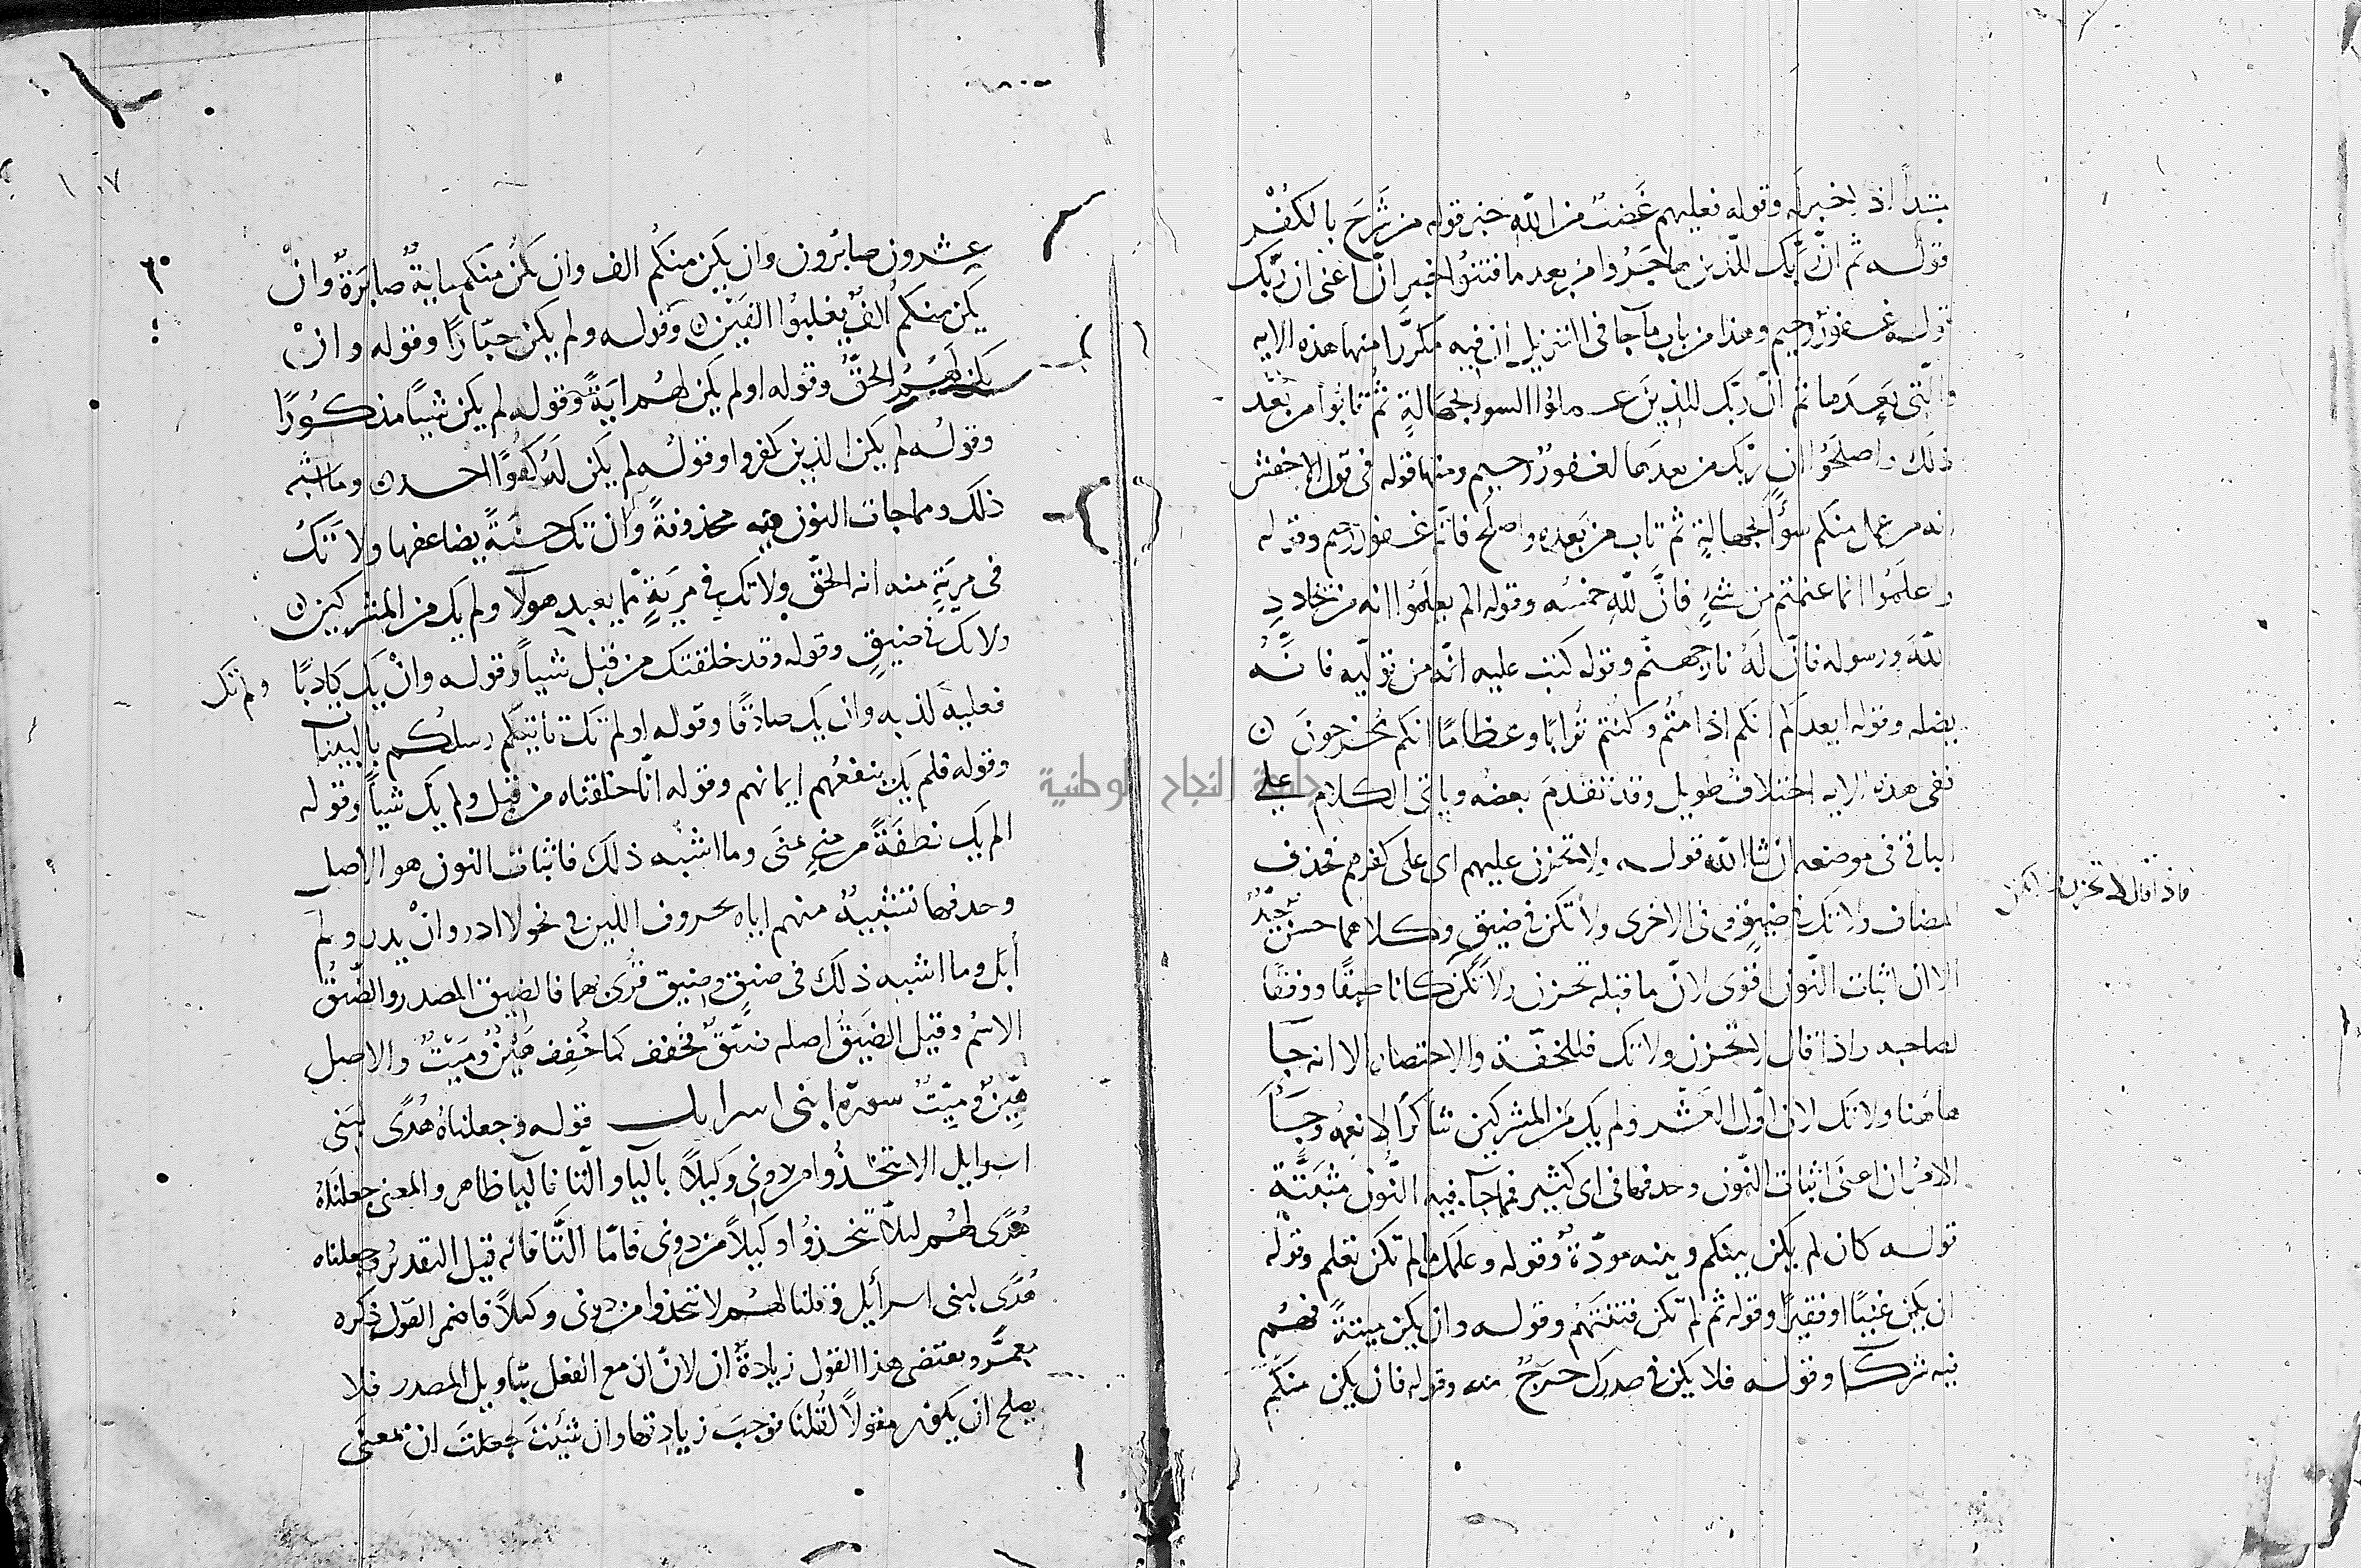 مبتدأ اذ لا خبر له وقوله فعليهم غضب من الله خبر قوله من شرح بالكفر
قوله ثم ان ربك للذين هاجروا من بعد ما فتنوا خبر ان اعنى ان ربك
قوله غفور رحيم وهذا من باب ما جا فى التنزيل ان فيه مكررا منها هذه الايه
والتى بعدها ثم ان ربك للذين عملوا السو بجهالة ثم تابوا من بعد
ذلك واصلحوا ان ربك من بعدها لغفور رحيم ومنها قوله فى قول الاخفش
انه من عمل منكم سوًا بجهالة ثم تاب من بعده واصلح فانه غفور رحيم وقوله
واعلموا انما غنمتم من شىء فان لله خمسه وقوله الم يعلموا انه من يحادد
الله ورسوله فان له نار جهنم وقوله كتب عليه انه من تولاه فانه
يضله وقوله ايعدكم انكم اذا متم وكنتم ترابا وعظاما انكم مخرجون ن
ففى هذه الايه اختلاف طويل وقد تقدم بعضه وياتى الكلام على
الباقى فى موضعه ان شا الله قوله ولا تحزن عليهم اى على كفرهم فحذف
المضاف ولا تك فى ضيق وفى الاخرى ولا تكن فى ضيق وكلاهما حسن جيد
الا ان اثبات النون اقوى لان ما قبله تحزن ولا تكن كانا طبقا ووفقا
لصاحبه واذا قال لا تحزن ولا تك فللخفة والاختصار الا انه جا
هاهنا ولا تك لان اول العشر ولم يك من المشركين شاكرا لانعمه وجا
الامران اعنى اثبات النون وحذفها فى اى كثير فما جا فيه النون مثبتة
قوله كان لم يكن بينكم وبينه مودة وقوله وعلمك ما لم تكن تعلم وقوله
ان يكن غنيا او فقيرا وقوله ثم لم تكن فتنتهم وقوله وان يكن ميتة فهم
فيه شركا وقوله فلا يكن فى صدرك حرج منه وقوله فان يكن منكم
فاذا قال لا تحزن ولا تكن
عشرون صابرون وان يكن منكم الف وان يكن منكم ماية صابرة وان
يكن منكم الف يغلبوا الفين ن وقوله ولم يكن جبارا وقوله وان
يكن لهم الحق وقوله اولم يكن لهم اية وقوله لم يكن شيئا مذكورا
وقوله لم يكن الذين كفروا وقوله لم يكن له كفوا احد ن وما اشبه
ذلك ومما جات النون فيه محذوفة وان تك حسنة يضاعفها ولا تك
فى مرية منه انه الحق ولا تك فى مرية مما يعبد هولا ولم يك من المشركين ن
ولا تك فى ضيق وقوله وقد خلقتك من قبل شيئا وقوله وان يك كاذبا
ولم تك
فعليه كذبه وان يك صادقا وقوله اولم تك تاتيكم رسلكم بالبينات
وقوله فلم يك ينفعهم ايمانهم وقوله انا خلقناه من قبل ولم يك شيئا وقوله
الم يك نطفة من منى تمنى وما اشبه ذلك فاثبات النون هو الاصل
وحذفها تشبيه منهم اياه بحروف اللين فى نحو لا ادر وان يدر ولم
ابل وما اشبه ذلك فى ضيق وضيق قرى بهما فالضيق المصدر والضيق
الاسم وقيل الضيق اصله ضيق فخفف كما خفف هين وميت والاصل
هين وميت سورة ابنى اسرايل قوله وجعلناه هدى لبنى
اسرايل الا تتخذوا من دونى وكيلا باليا والتا فاليا ظاهر والمعنى جعلناه
هدى لهم ليلا تتخذوا وكيلا من دونى فاما التا فانه قيل التقدير وجعلناه
هدى لبنى اسرأيل وقلنا لهم لا تتخذوا من دونى وكيلا فاضمر القول ذكره
معمر ويقتضى هذا القول زيادة ان لان ان مع الفعل بتاويل المصدر فلا
يصلح ان يكون مقولا لقلنا فوجب زيادتها وان شئت جعلت ان بمعنى
جامعة النجاح الوطنية